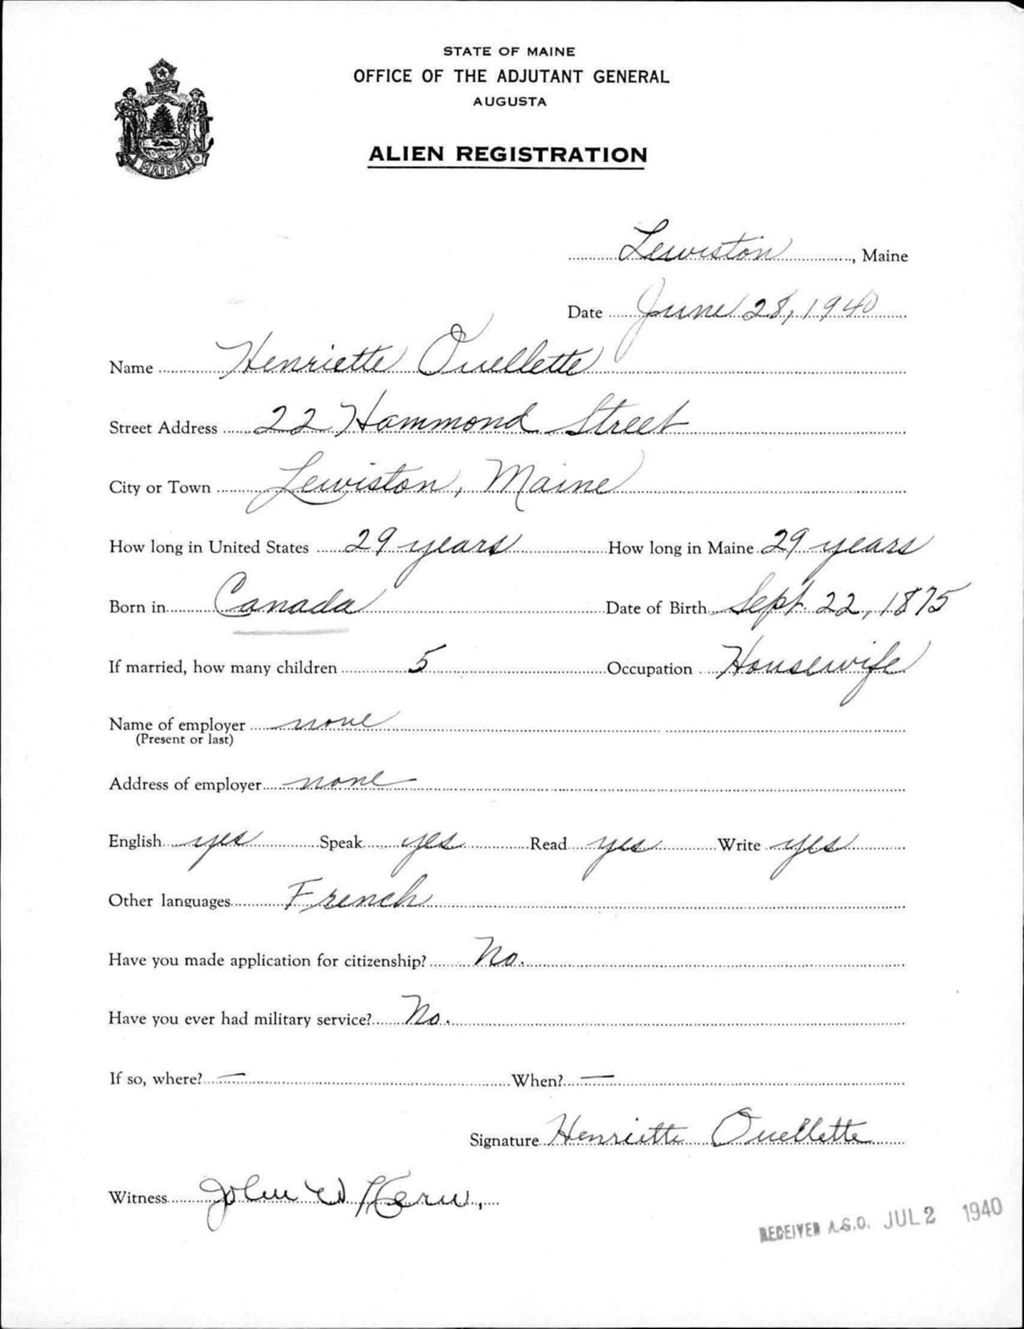 STATE OF MAINE
OFFICE OF THE ADJUTANT GENERAL
AUGUSTA
ALIEN REGISTRATION
MAINE
Lewiston, Maine
Date June 28, 1940
Name Henriette Ouellette
Street Address 22 Hammond Street
City or Town Lewiston, Maine
How long in United States 29 years How long in Maine 29 years
Born in Canada Date of Birth Sept. 22, 1875
If married, how many children 5 Occupation Housewife
Name of employer none
(Present or last)
Address of employer none
English yes Speak yes Read yes Write yes
Other languages French
Have you made application for citizenship? No.
Have you ever had military service? No.
If so, where? — When? —
Signature Henriette Ouellette
Witness John W
RECEIVED A.G.O. JUL 2 1940